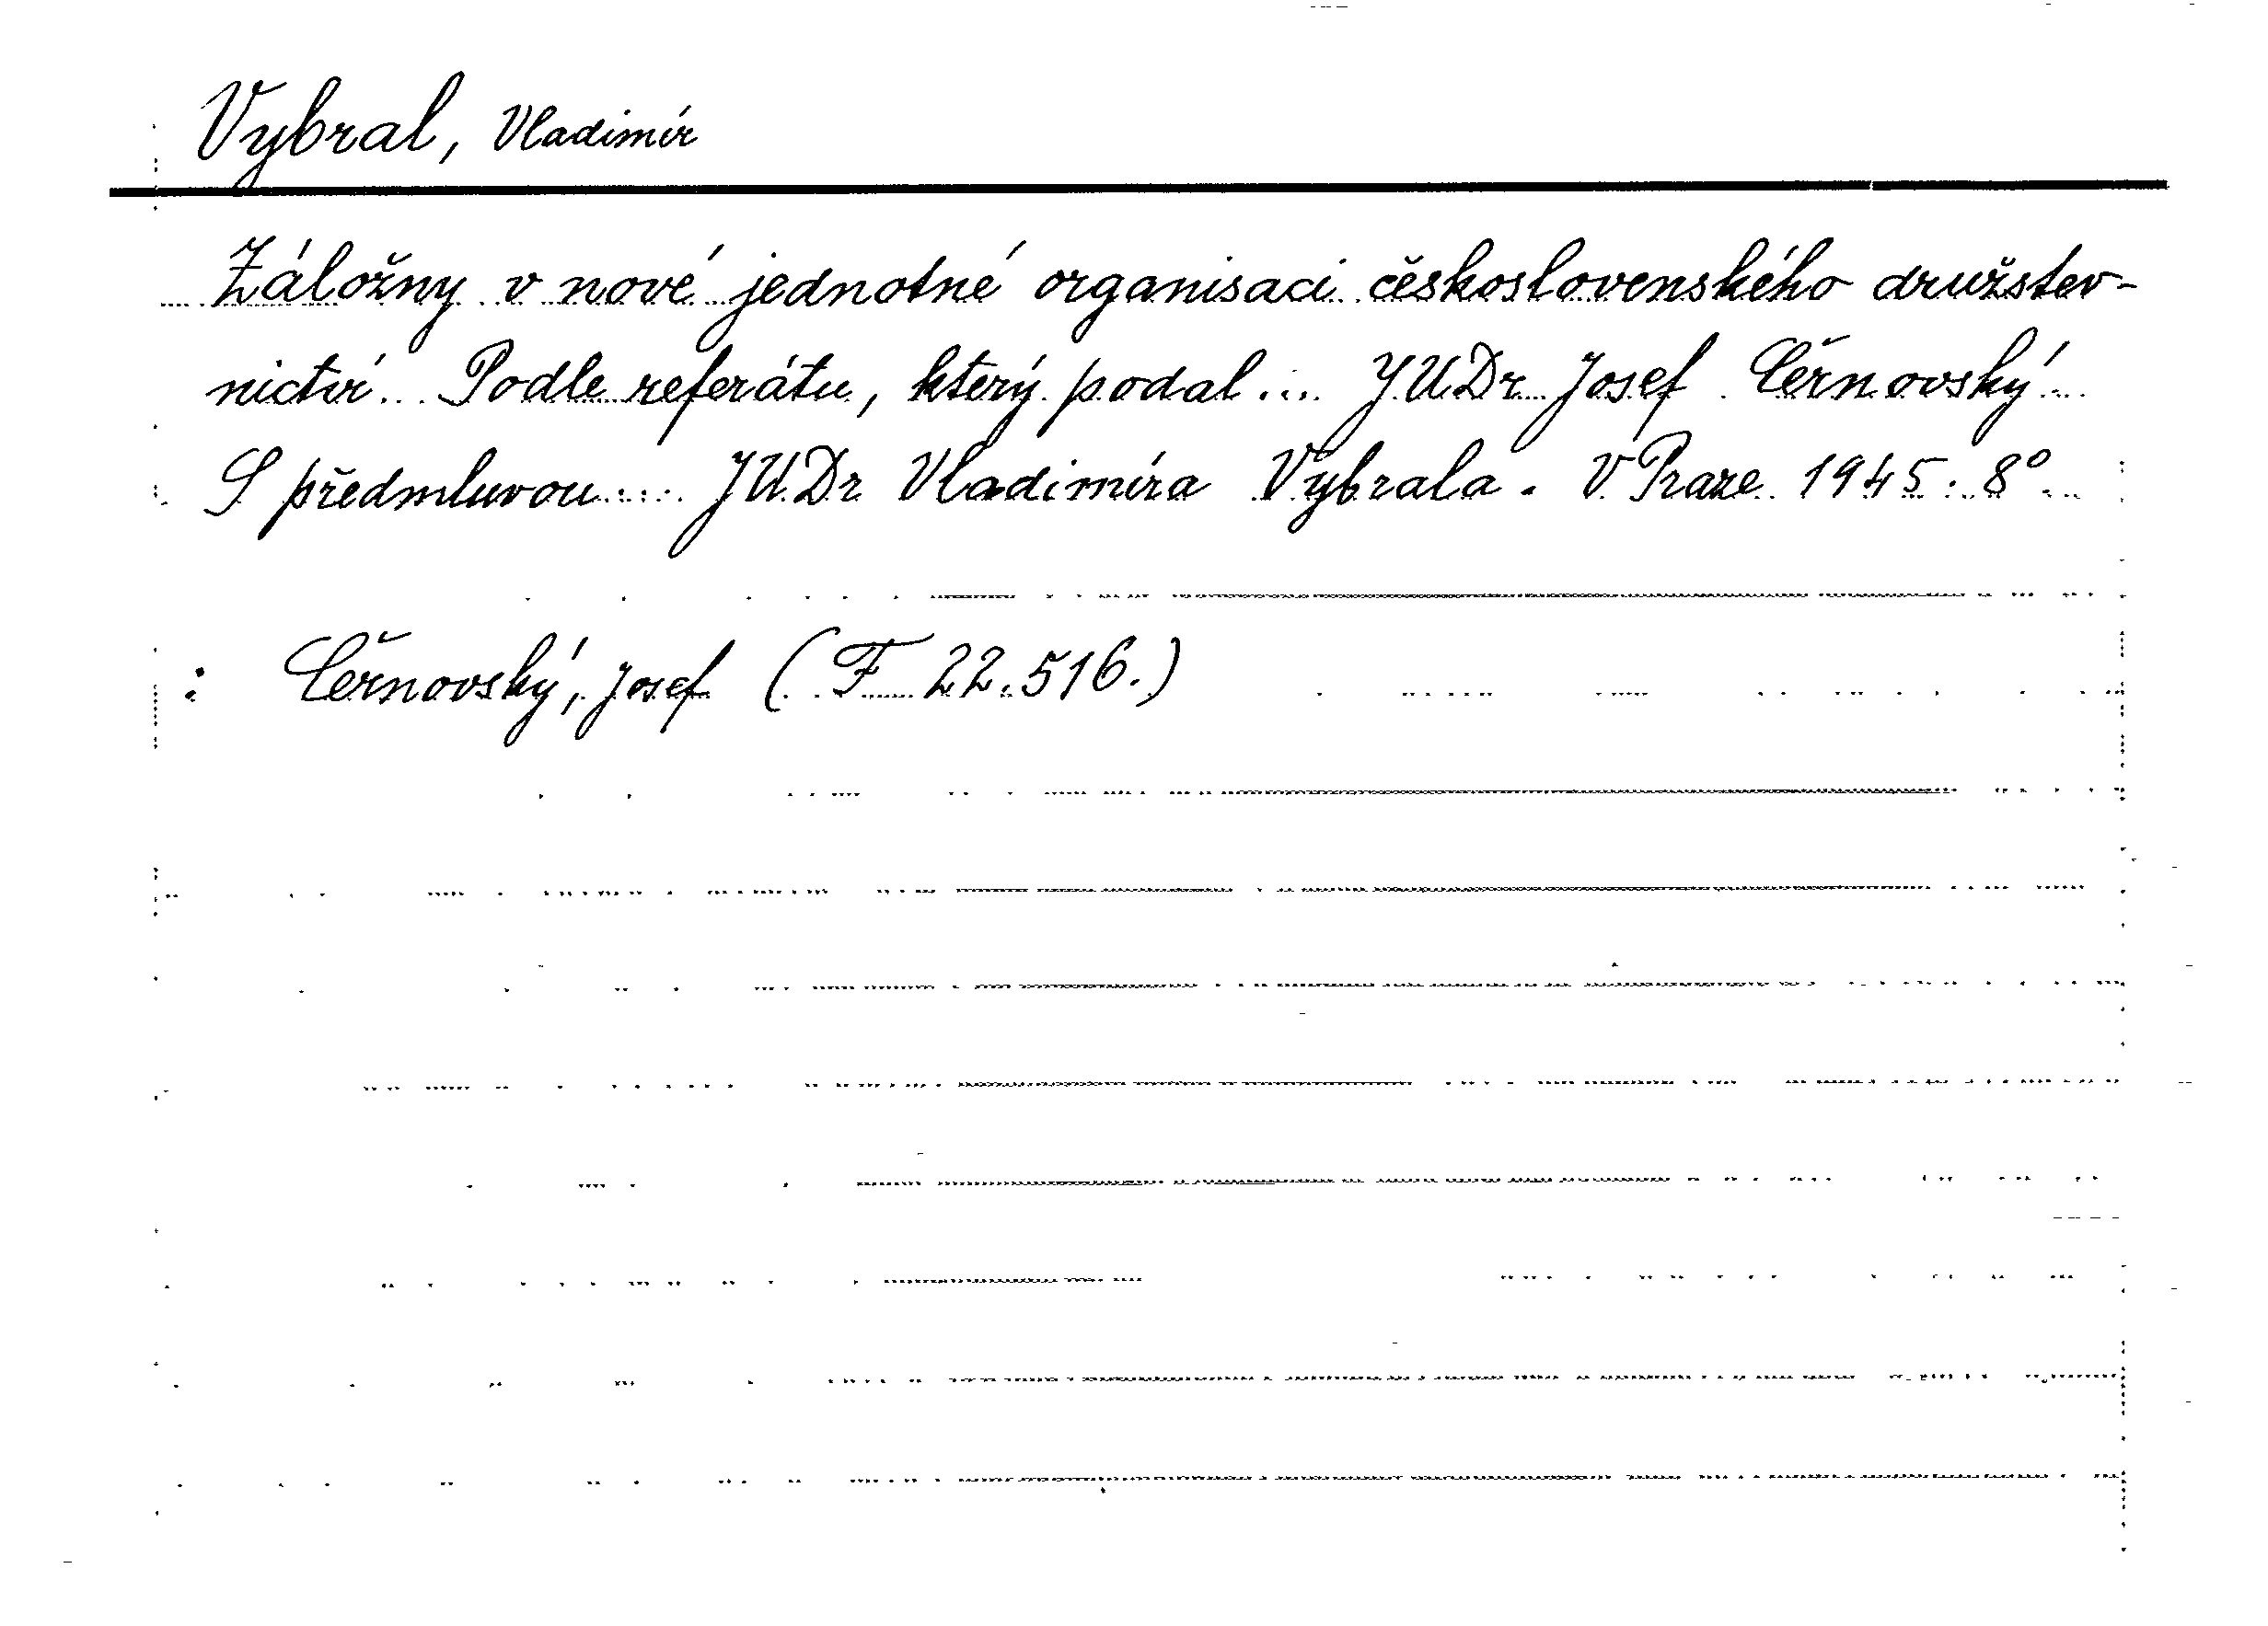 Vybral, Vladimír
Záložny v nové jednotné organisaci československého družstev-
nictví... Podle referátu, který podal... JUDr Josef Černovský...
S předmluvou.... JUDr Vladimíra Vybrala. V Praze 1945. 8°.
: Černovský, Josef (F 22.516.)